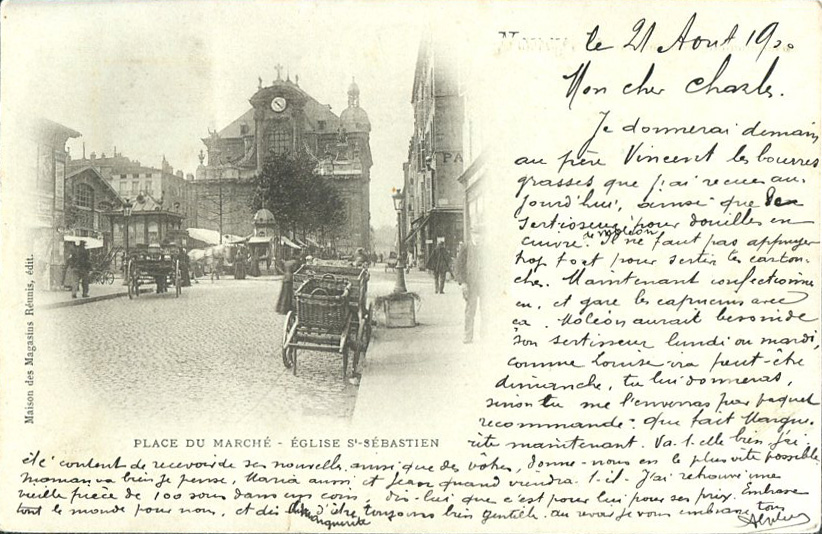 le 21 Aout 1900
Mon cher Charles.
Je donnerai demain
au père Vincent les bourres
grasses que j'ai recues au-
jourd'hui, ainsi que
sertisseur pour douilles en
cuivre. Il ne faut pas appuyer
trop fort pour sertir les cartou-
che. Maintenant confectionne
en, et gare les capucins avec
ça. Moléon aurait besoin de
son sertisseur lundi ou mardi,
comme Louise ira peut-être
dimanche, tu lui donneras,
sinon tu me l'enverras par paquet
recommandé. que fait Margue-
rite maintenant. Va-t-elle bien j'ai
été content de recevoir de ses nouvelles ainsi que des vôtres, donne-nous en le plus vite possible
maman va bien je pense, Maria aussi et Jean quand viendra-t-il. J'ai retrouvé une
vieille pièce de 100 sous dans un coin, dis-lui que c'est pour lui pour ses prix. Embrasse
tout le monde pour nous, et dis d'être toujours bien gentille. au revoir je vous embrasse tous
Marguerite
PLACE DU MARCHÉ - ÉGLISE St-SÉBASTIEN
Maison des Magasins Réunis, édit.
PA